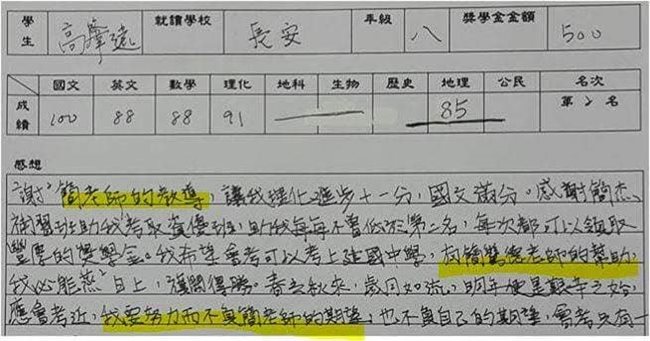 學生 高擎遠 就讀學校 長安 年級 八 獎學金金額 500
國文 英文 數學 理化 地科 生物 歷史 地理 公民 名次
成績 100 88 88 91 85 第2名
感想
謝〃簡老師的教導,讓我理化進步十一分,國文滿分。感謝簡杰
補習班助我考取資優班,助我每每不曾低於第二名,每次都可以領取
豐厚的獎學金。我希望會考可以考上建國中學,
老師的幫助,
我必能蒸〃日上,旗開得勝。春去秋來,歲月如流,明年便是艱辛之始,
應會考近,我要努力而不負簡老師的期望,也不負自己的期望,會考只有一